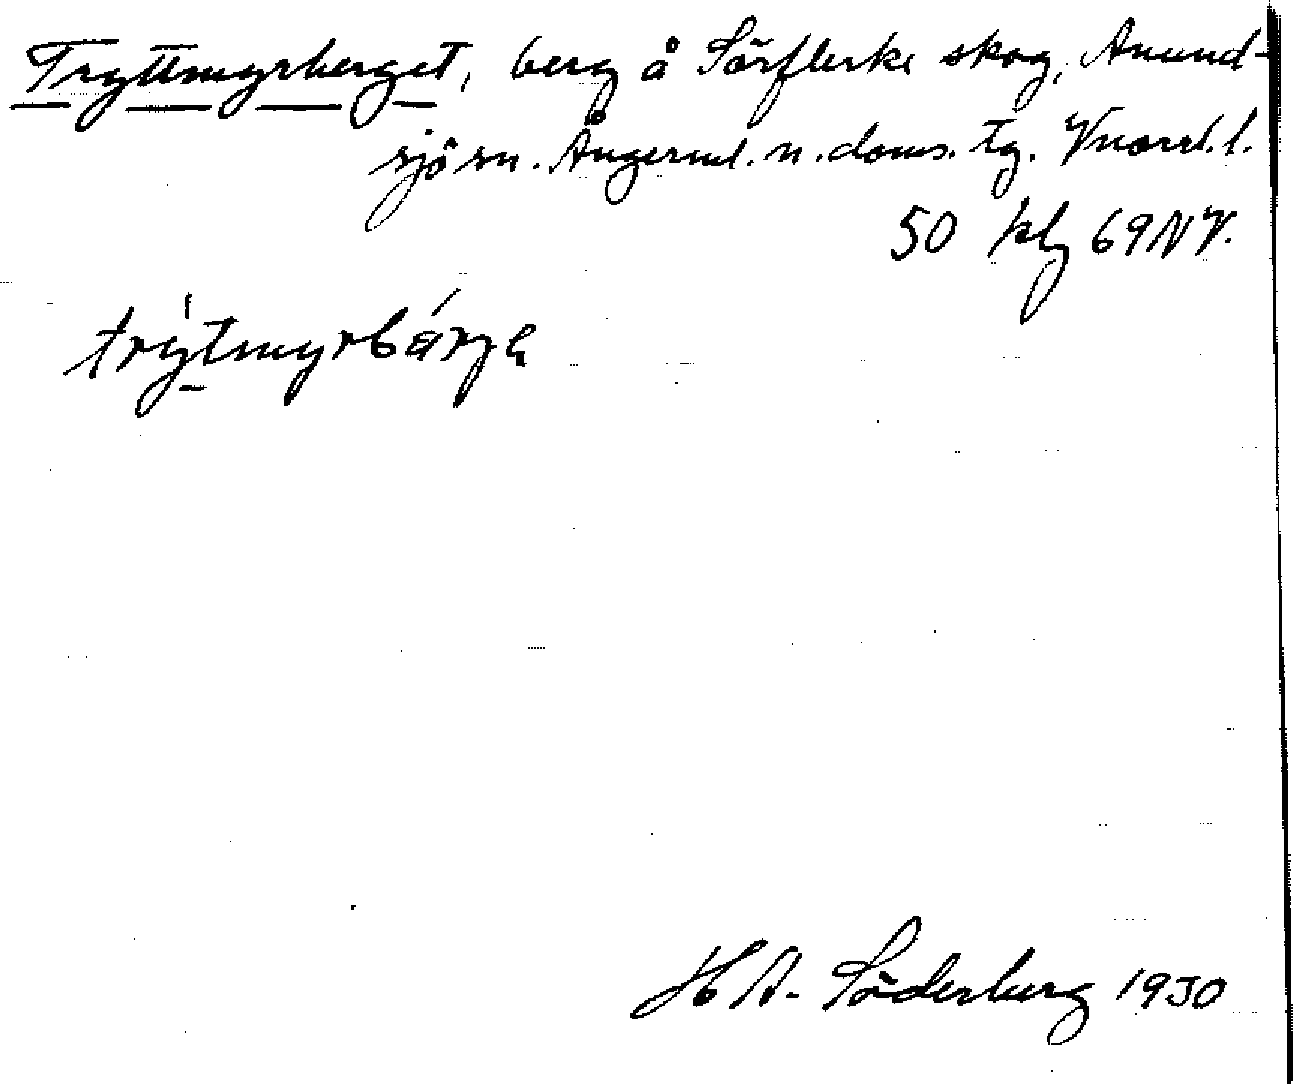 Tryttmyrberget, berg å Sörflärke skog, Anund-
sjö sn. Ångerml. n. doms. tg. Vnorrl. l.
50 kbl 69NV.
trýtmyrbárjə
H A. Söderberg 1930